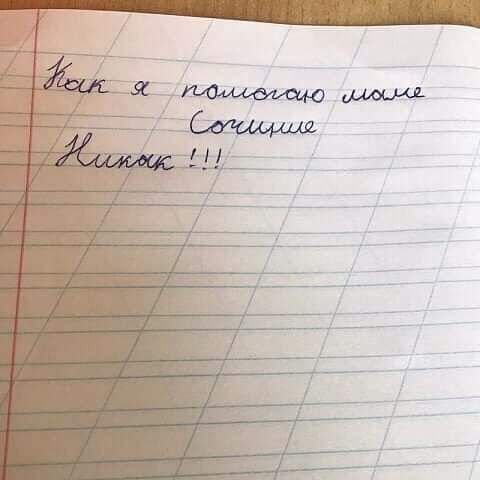 Как я помогаю маме
Сочицие
Никак!!!